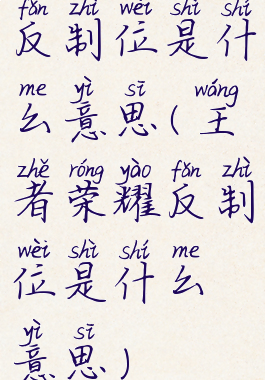 fǎn zhì wèi shì shí
反制位是什
me yì sī wáng
么意思(王
zhě róng yào fǎn zhì
者荣耀反制
wèi shì shí me
位是什么
yì sī
意思)